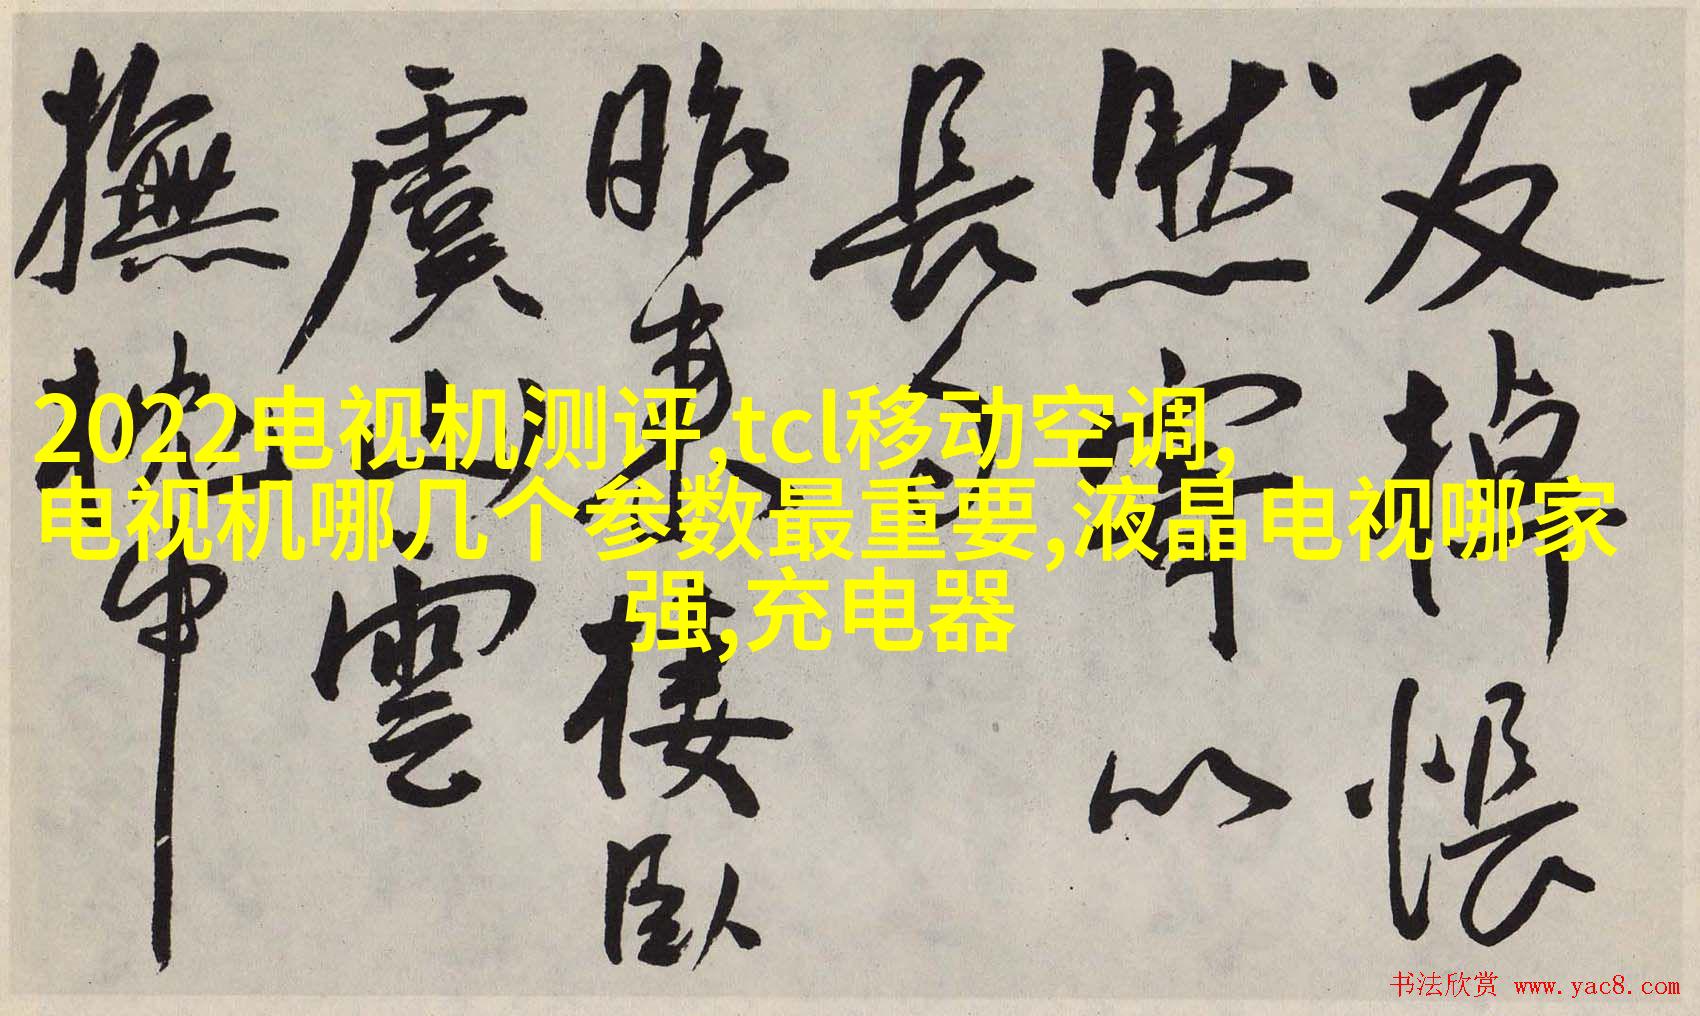 反棹悵
然寧以
長
昨來棲臥
虞山雲
撫
2022电视机测评,tcl移动空调,
电视机哪几个参数最重要,液晶电视哪家
强,充电器
书法欣赏 www.yac8.com